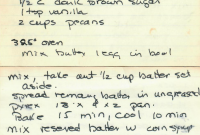 1/2 c dark brown sugar
1 tsp vanilla
2 cups pecans
325° oven
mix butter 1 egg in bowl
mix, take out 1/2 cup batter set
aside.
spread remaing batter in ungreased
pyrex 13" x 9" x 2" pan.
Bake 15 min, Cool 10 min
mix reserved batter w corn syrup